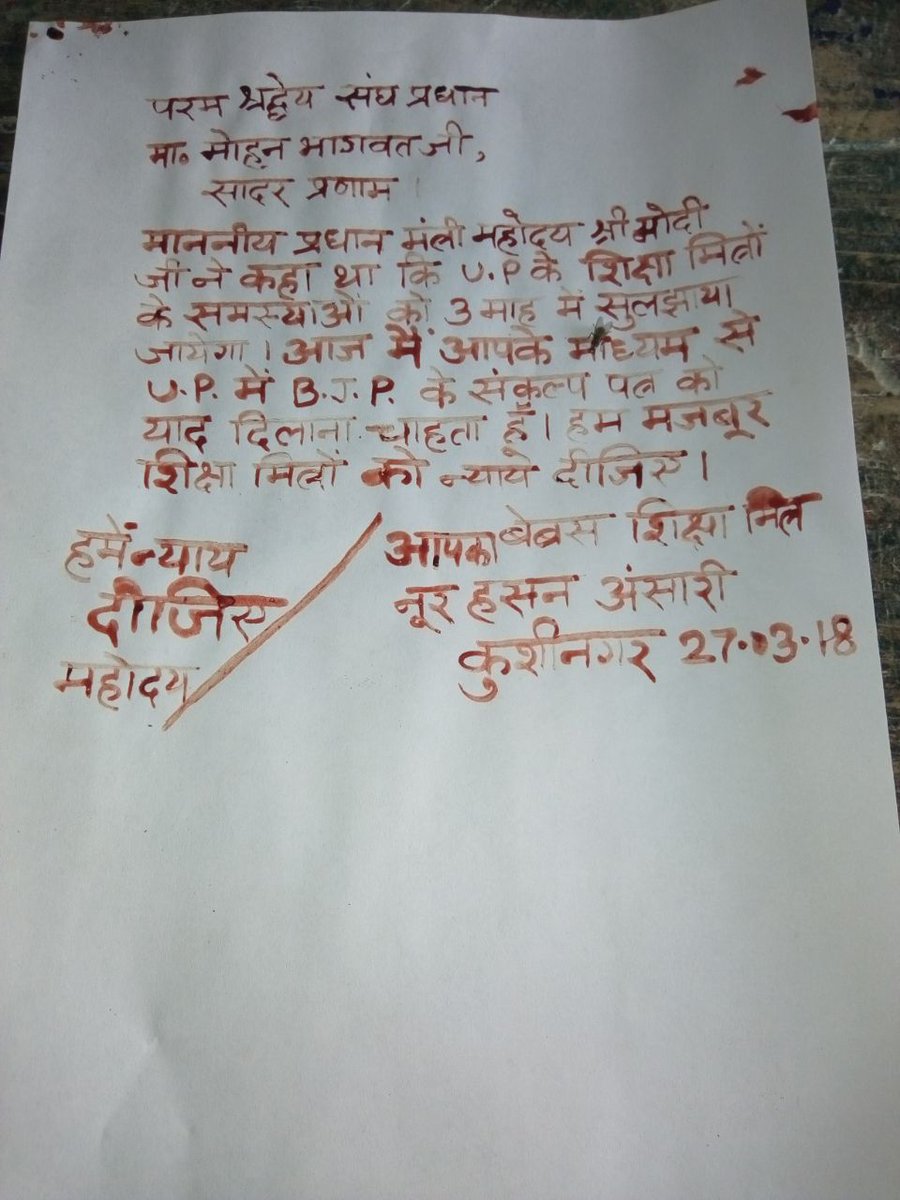 परम श्रद्धेय संघ प्रधान
मा॰ मोहन भागवत जी,
सादर प्रणाम।
माननीय प्रधान मंत्री महोदय श्री मोदी
जी ने कहा था कि U.P के शिक्षा मित्रों
के समस्याओं को 3 माह में सुलझाया
जायेगा। आज मैं आपके माध्यम से
U.P. में B.J.P. के संकल्प पत्र को
याद दिलाना चाहता हूँ। हम मजबूर
शिक्षा मित्रों को न्याये दीजिए।
हमें न्याय
दीजिए
महोदय
आपका बेबस शिक्षा मित्र
नूर हसन अंसारी
कुशीनगर 27.03.18